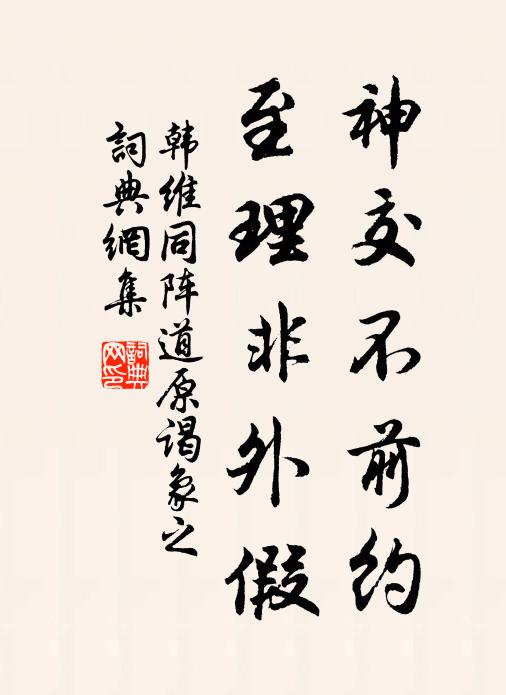 神交不前约
至理非外假
韩维同阵道原谒象之
詞典網集
詞典
网印